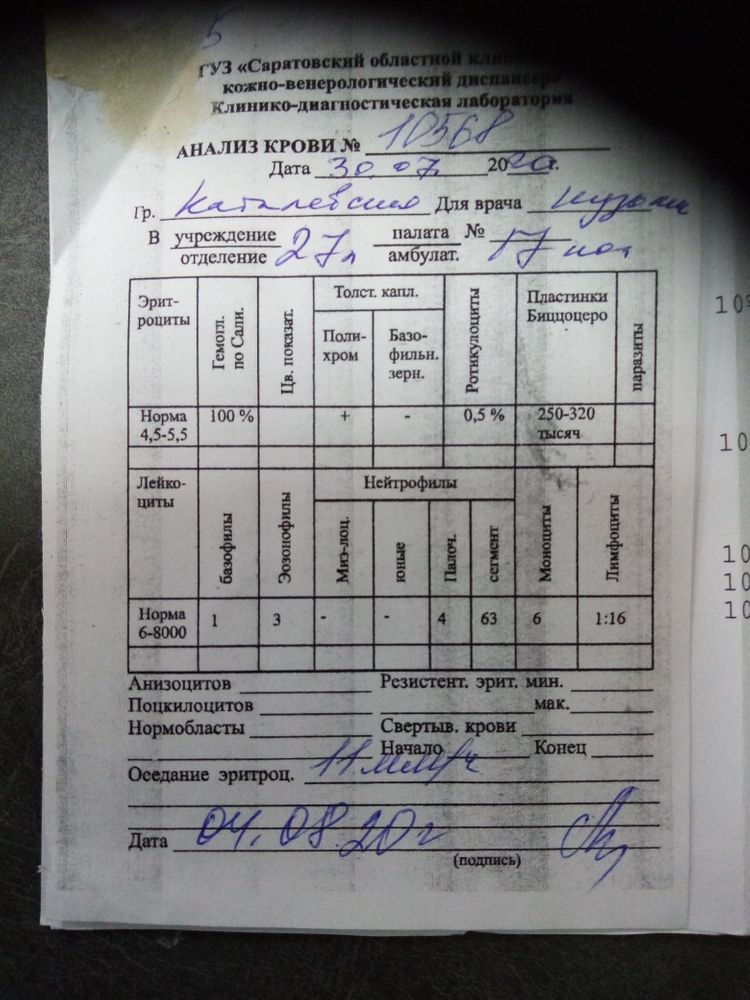 5
ГУЗ «Саратовский областной
кожно-венерологический диспансер»
Клинико-диагностическая лаборатория
АНАЛИЗ КРОВИ № 10568
Дата 30.07. 2020г.
Гр. Для врача
В учреждение отделение 27л палата амбулат. № 17
Эрит-
роциты
Гемогл.
по Сали.
Цв. показат.
Толст. капл.
Поли-
хром
Базо-
фильн.
зерн.
Ротикулоциты
Пластинки
Биццоцеро
паразиты
Норма
4,5-5,5
100 %
+
-
0,5 %
250-320
тысяч
Лейко-
циты
базофилы
Эозонофилы
Нейтрофилы
Миэ-лоц.
юные
Палоч.
сегмент
Моноциты
Лимфоциты
Норма
6-8000
1
3
-
-
4
63
6
1:16
Анизоцитов Резистент. эрит. мин.
Поцкилоцитов мак.
Нормобласты Свертыв. крови
Начало Конец
Оседание эритроц. 11 мм/ч
Дата 04.08.20г
(подпись)
10
10
10
10